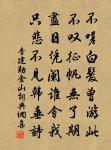 不嗟白髮曾游此
不叹征帆無了期
盡日凭闌誰會我
只悲不見韓垂詩
李建勳金山詞典網